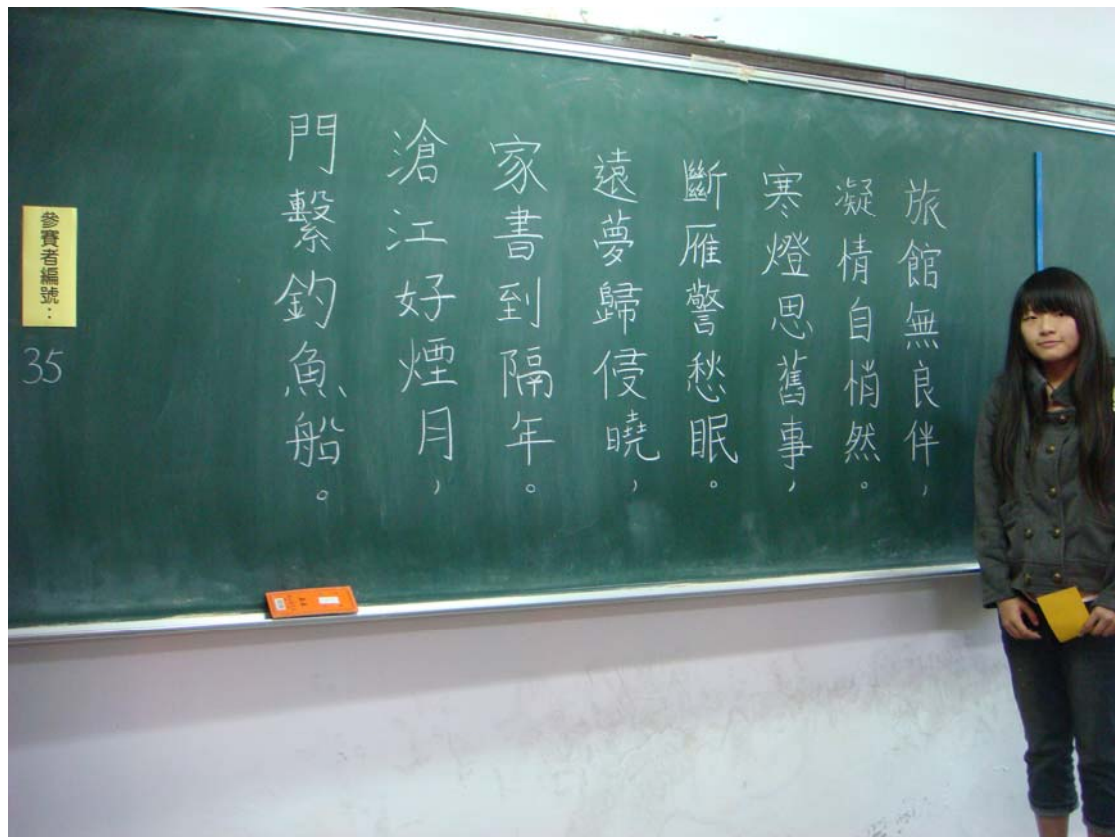 旅館無良伴，
凝情自悄然。
寒燈思舊事，
斷雁警愁眠。
遠夢歸侵曉，
家書到隔年。
滄江好煙月，
門繫釣魚船。
參賽者編號：
35